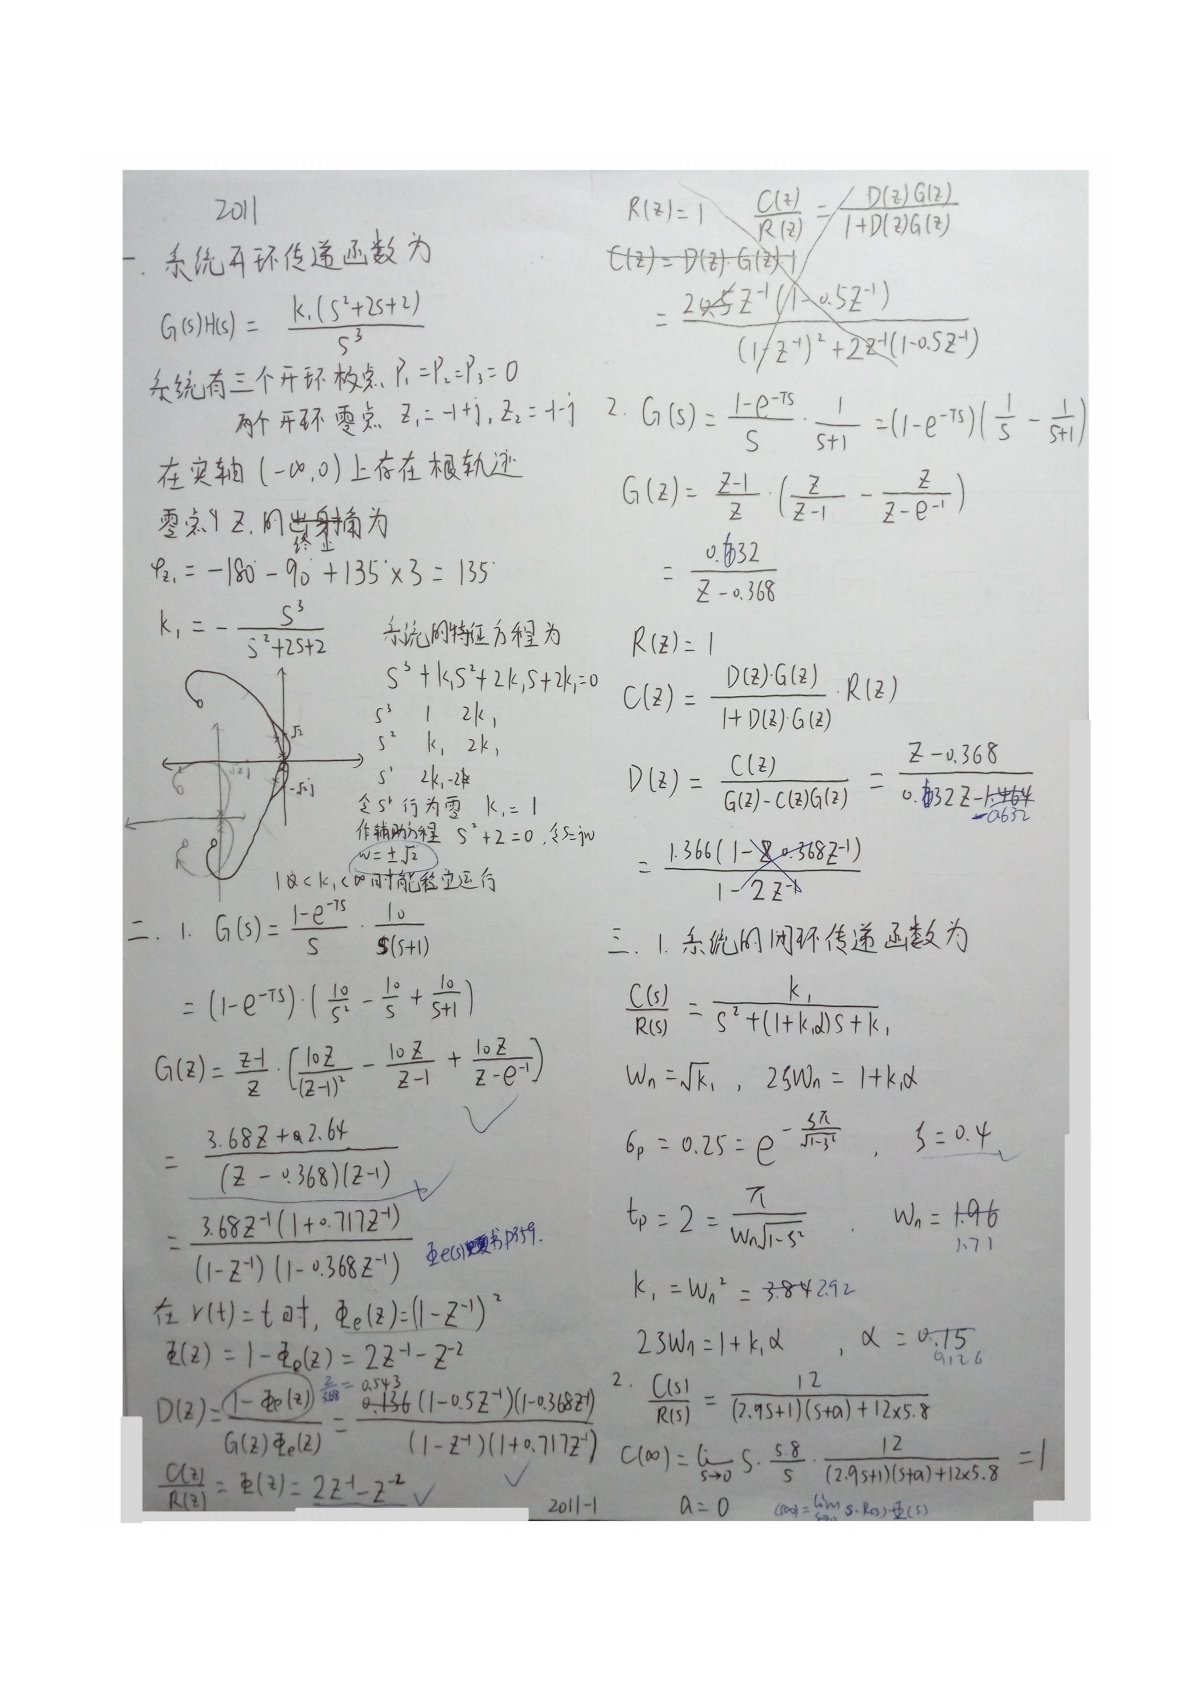 2011
一. 系统开环传递函数为
G(s)H(s) = k₁(s²+2s+2) / s³
系统有三个开环极点, P₁=P₂=P₃=0
两个开环零点 Z₁=-1+j, Z₂=-1-j
在实轴 (-∞,0) 上存在根轨迹
零点 Z₁的终止角为
φz₁ = -180° - 90° + 135°×3 = 135°
k₁ = - s³ / (s²+2s+2)
系统的特征方程为
s³+k₁s²+2k₁s+2k₁=0
s³ 1 2k₁
s² k₁ 2k₁
s¹ 2k₁-2
√2
-√2j
√2j
令s¹行为零 k₁=1
作辅助方程 s²+2=0, 令s=jw
w=±√2
1<k₁<∞时能稳定运行
二. 1. G(s) = (1-e^-Ts)/s · 10/(s(s+1))
= (1-e^-Ts)·(10/s² - 10/s + 10/(s+1))
G(z) = (z-1)/z · [10z/(z-1)² - 10z/(z-1) + 10z/(z-e⁻¹)]
= (3.68z+2.64) / ((z-0.368)(z-1))
= 3.68z⁻¹(1+0.717z⁻¹) / ((1-z⁻¹)(1-0.368z⁻¹))
Φe(s) 书P359.
在 r(t)=t 时, Φe(z)=(1-z⁻¹)²
Φ(z) = 1-Φe(z) = 2z⁻¹-z⁻²
2/3.68 = 0.543
D(z) = (1-Φe(z)) / (G(z)Φe(z)) = 0.136(1-0.5z⁻¹)(1-0.368z⁻¹) / ((1-z⁻¹)(1+0.717z⁻¹))
C(z)/R(z) = Φ(z) = 2z⁻¹-z⁻²
2011-1
R(z)=1 C(z)/R(z) = D(z)G(z) / (1+D(z)G(z))
C(z) = D(z)·G(z)·1
= 2z⁻¹(1-0.5z⁻¹) / ((1-z⁻¹)²+2z⁻¹(1-0.5z⁻¹))
2. G(s) = (1-e^-Ts)/s · 1/(s+1) = (1-e^-Ts)(1/s - 1/(s+1))
G(z) = (z-1)/z · (z/(z-1) - z/(z-e⁻¹))
= 0.632 / (z-0.368)
R(z)=1
C(z) = D(z)·G(z) / (1+D(z)·G(z)) · R(z)
D(z) = C(z) / (G(z)-C(z)G(z)) = (z-0.368) / (0.632z-1.464)
-0.632
= 1.366(1-0.368z⁻¹) / (1-2z⁻¹)
三. 1. 系统的闭环传递函数为
C(s)/R(s) = k₁ / (s²+(1+k₁α)s+k₁)
Wn=√k₁, 2ζWn = 1+k₁α
σp = 0.25 = e^(-ζπ/√(1-ζ²)), ζ=0.4
tp = 2 = π / (Wn√(1-ζ²)) , Wn = 1.96
1.71
k₁ = Wn² = 3.84 2.92
2ζWn = 1+k₁α , α = 0.15
0.126
2. C(s)/R(s) = 12 / ((2.9s+1)(s+a)+12×5.8)
C(∞) = lim s→0 s· 5.8/s · 12 / ((2.9s+1)(s+a)+12×5.8) = 1
a=0 C(∞)=lim s→0 s·R(s)·Φ(s)